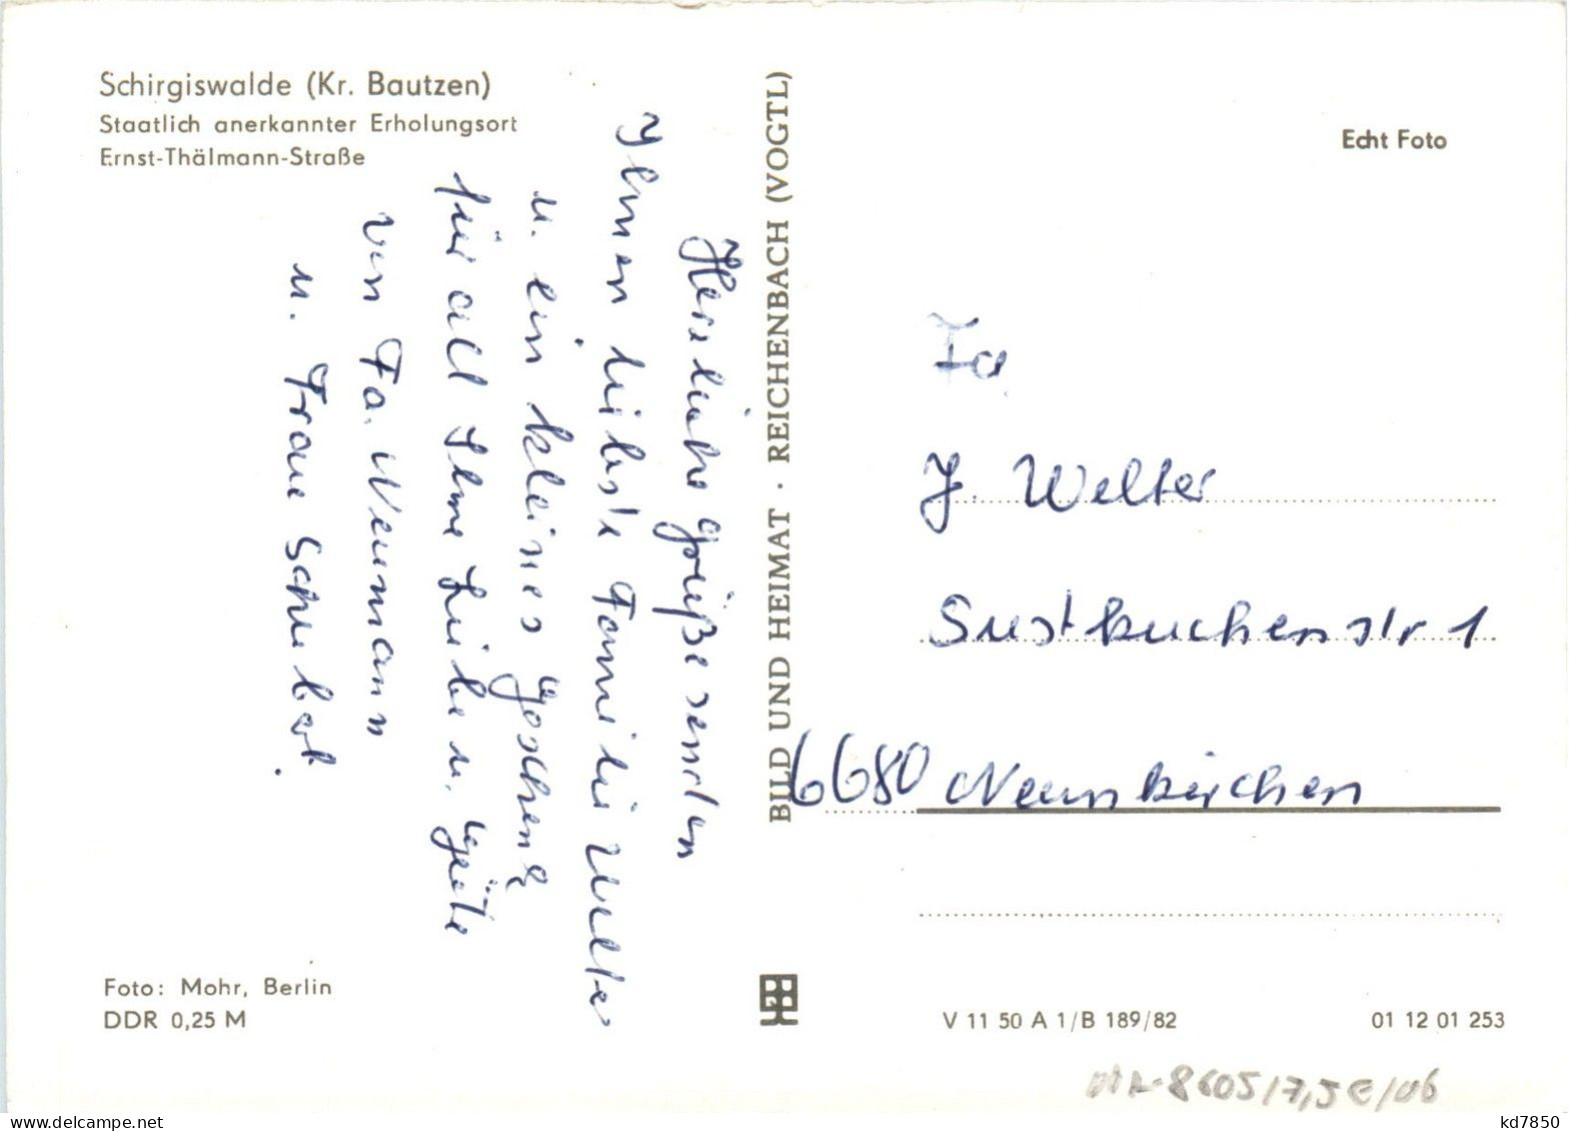 Schirgiswalde (Kr. Bautzen)
Staatlich anerkannter Erholungsort
Ernst-Thälmann-Straße
Herzliche grüße senden
Ihnen liebste Familie Welter
u. ein kleines goschenk
für all Ihre Liebe u. güte
von Fa. Neumann
u. Frau Schubert.
Foto: Mohr, Berlin
DDR 0,25 M
BILD UND HEIMAT · REICHENBACH (VOGTL)
Echt Foto
Fa
J. Welter
Sustkuchenstr 1
6680 Neunkirchen
V 11 50 A 1/B 189/82
01 12 01 253
8605/7,5€/06
kd7850